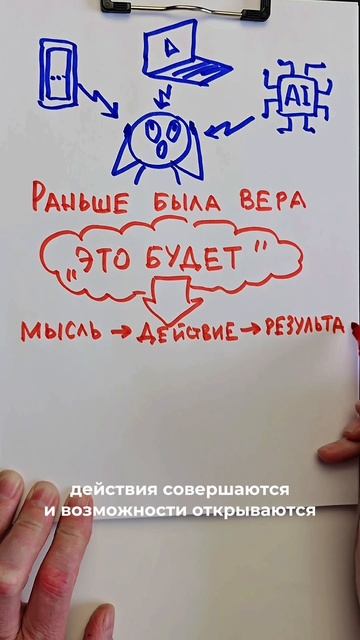 AI
РАНЬШЕ БЫЛА ВЕРА
„ЭТО БУДЕТ"
МЫСЛЬ → ДЕЙСТВИЕ → РЕЗУЛЬТА
действия совершаются
и возможности открываются